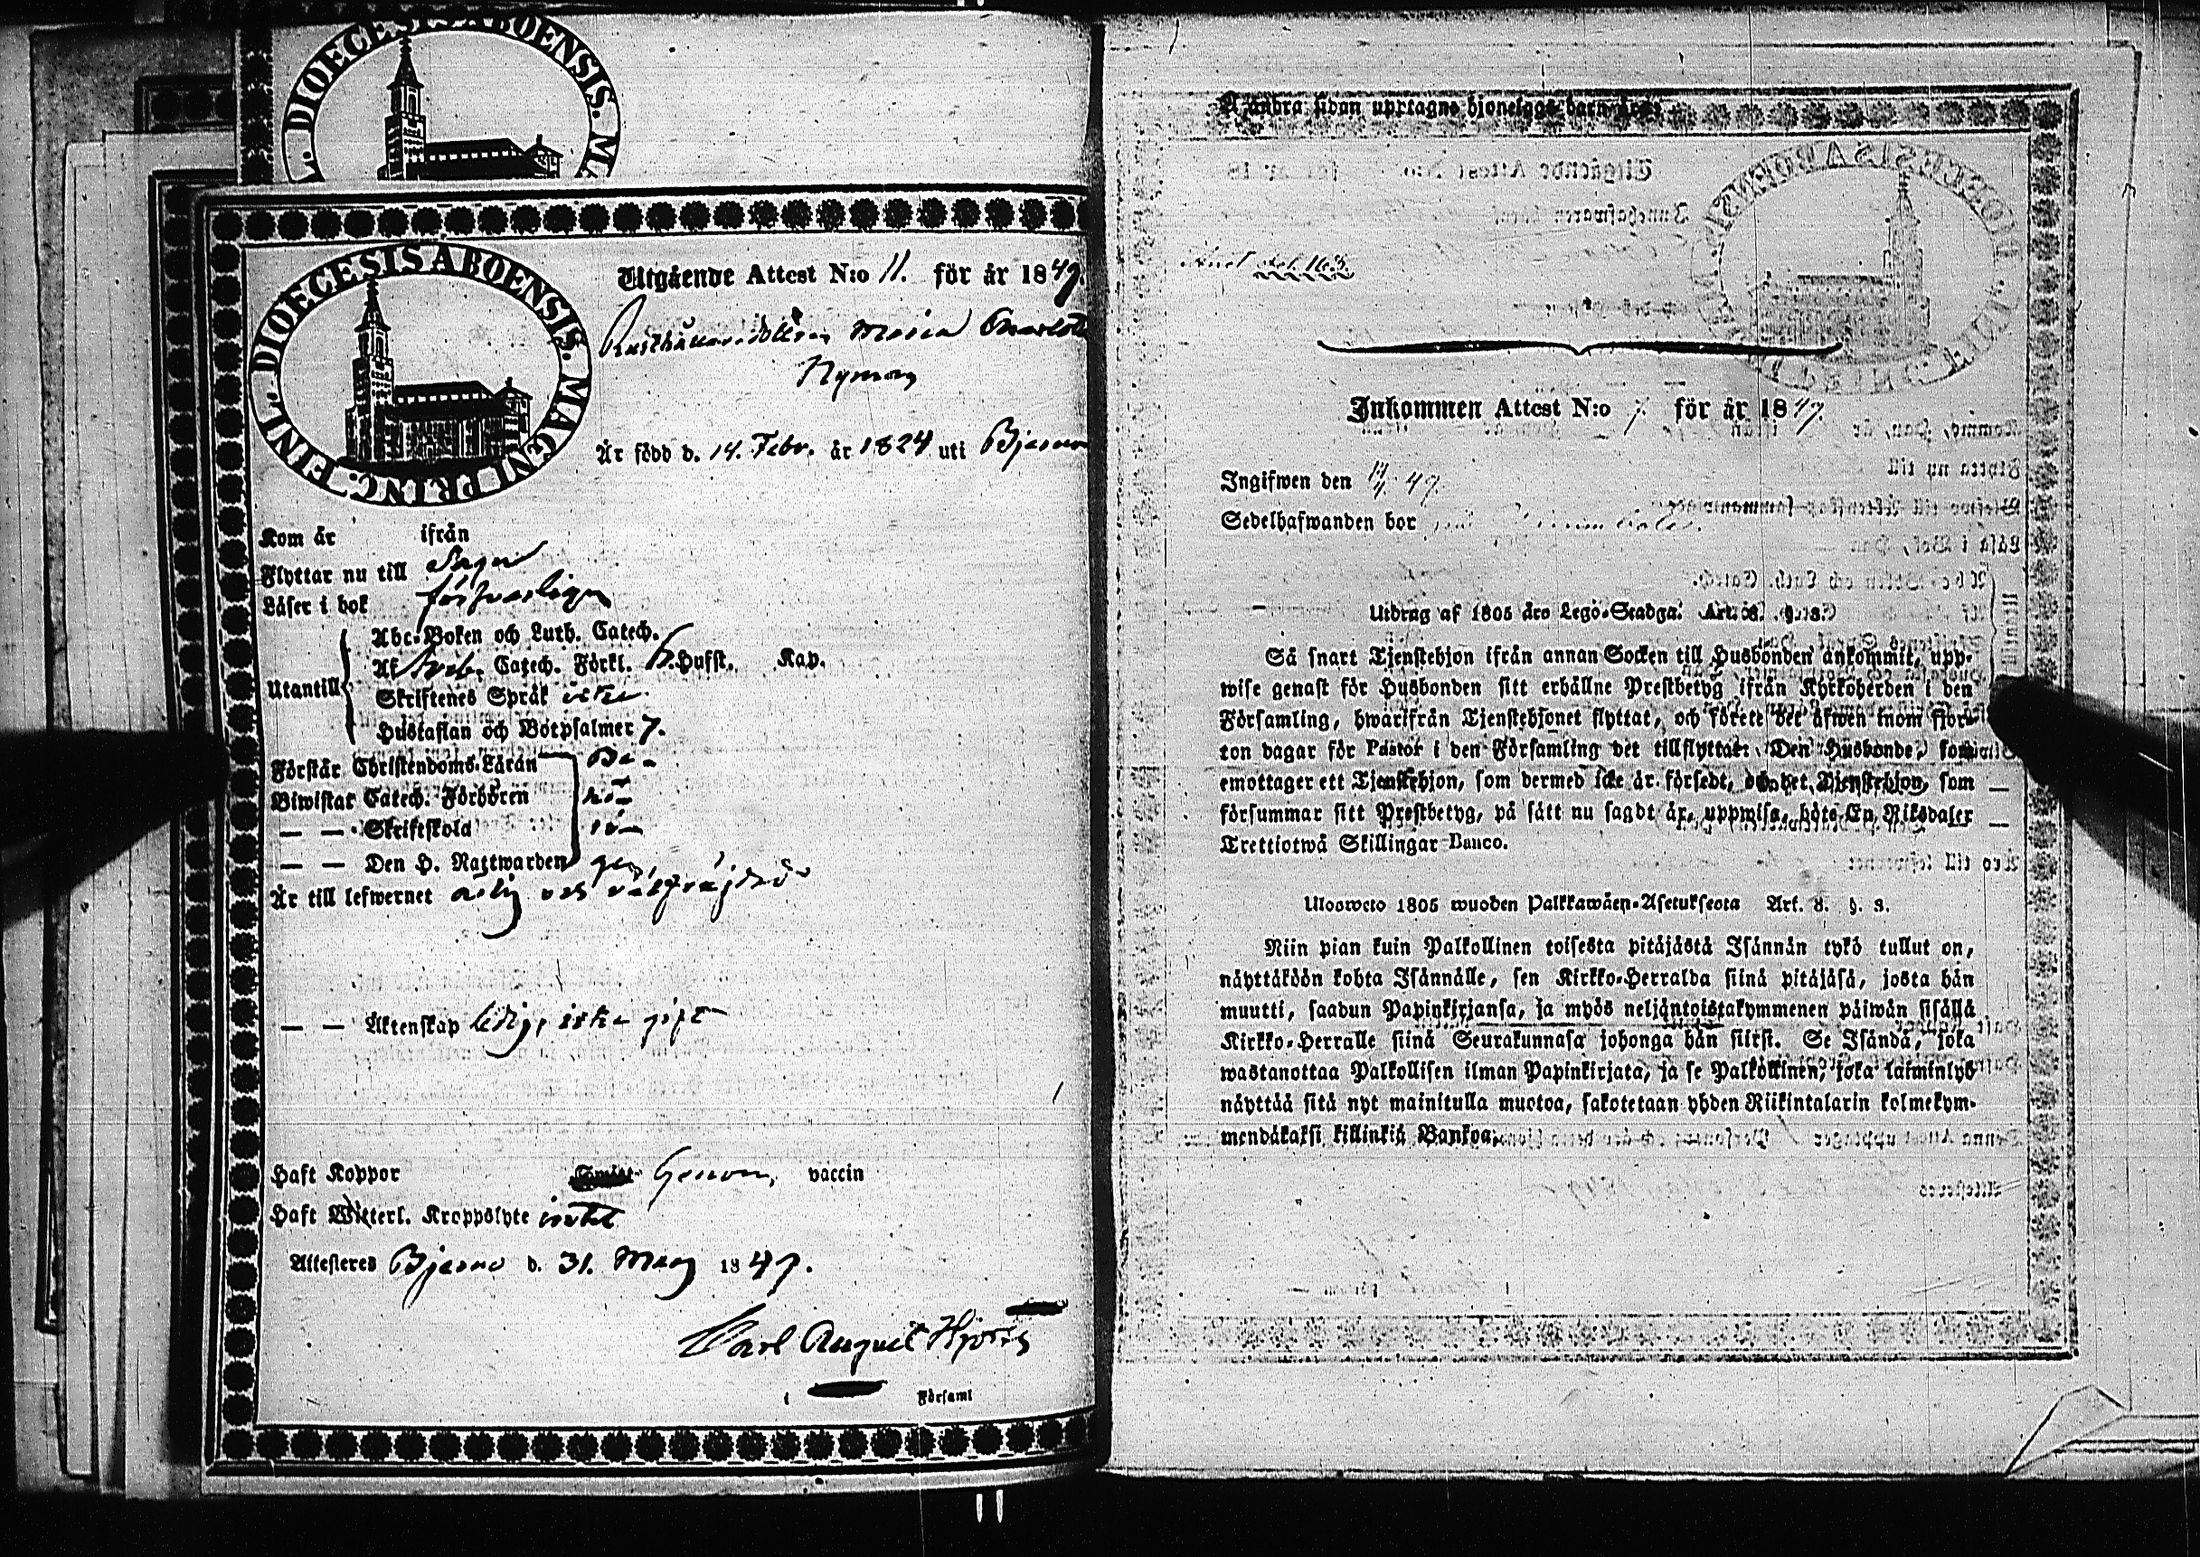 DIOECESIS ABOENSIS. MA
DIOECESIS ABOENSIS. MAGNI PRINC. FINL.
Utgående Attest N:o 11. för år 1849.
Rusthållaredottren Maria Charlotta
Nyman
Är född d. 14. Febr. år 1824 uti Bjerno
Kom år ifrån
Flyttar nu till Sagu
Läser i bok försvarligen
Utantill
Abc-Boken och Luth. Catech.
Af Sveb. Catech. Förkl. Hufst. Kap.
Skriftenes Språk icke
Hustaflan och Botpsalmer 7.
Förstår Christendoms-Läran
Biwistat Catech. Förhören
— — Skriftskola
— — Den H. Nattwarden
Är till lefwernet ärlig och välfräjdad
— — Äktenskap ledig, icke gift
Haft Koppor Genom vaccin
Haft Witterl. Kroppslyte intet
Attesteres Bjerno d. 31. Mars 1849.
Carl August Hjorth
i Församl
Å andra sidan upptagne hjonelags barn äro:
Inkommen Attest N:o 7. för år 1849.
Ingifwen den 11/4 49.
Sedelhafwanden bor
Utdrag af 1805 års Lego-Stadga. Art. 8. §. 3.
Så snart Tjenstehjon ifrån annan Socken till Husbonden ankommit, upp-
wise genast för Husbonden sitt erhållne Prestbetyg ifrån Kyrkoherden i den
Församling, hwarifrån Tjenstehjonet flyttat, och förete det äfwen inom fjor-
ton dagar för Pastor i den Församling det tillflyttat. Den Husbonde, som
emottager ett Tjenstehjon, som dermed icke är försedt, och det Tjenstehjon, som
försummar sitt Prestbetyg, på sätt nu sagdt är, uppwisa, böte En Riksdaler
Trettiotwå Skillingar Banco.
Uloswето 1805 wuoden Palkkawäen-Asetuksesta Art. 8. §. 3.
Niin pian kuin Palkollinen toisesta pitäjästä Isännän tykö tullut on,
näyttäköön kohta Isännälle, sen Kirkko-Herralda siinä pitäjäsä, josta hän
muutti, saadun Papinkirjansa, ja myös neljäntoistakymmenen päiwän sisällä
Kirkko-Herralle siinä Seurakunnasa johonga hän siirsi. Se Isändä, joka
wastanottaa Palkollisen ilman Papinkirjata, ja se Palkollinen, joka laiminlyö
näyttää sitä nyt mainitulla muotoa, sakotetaan yhden Riikintalarin kolmekym-
mendäkaksi killinkiä Bankoa.